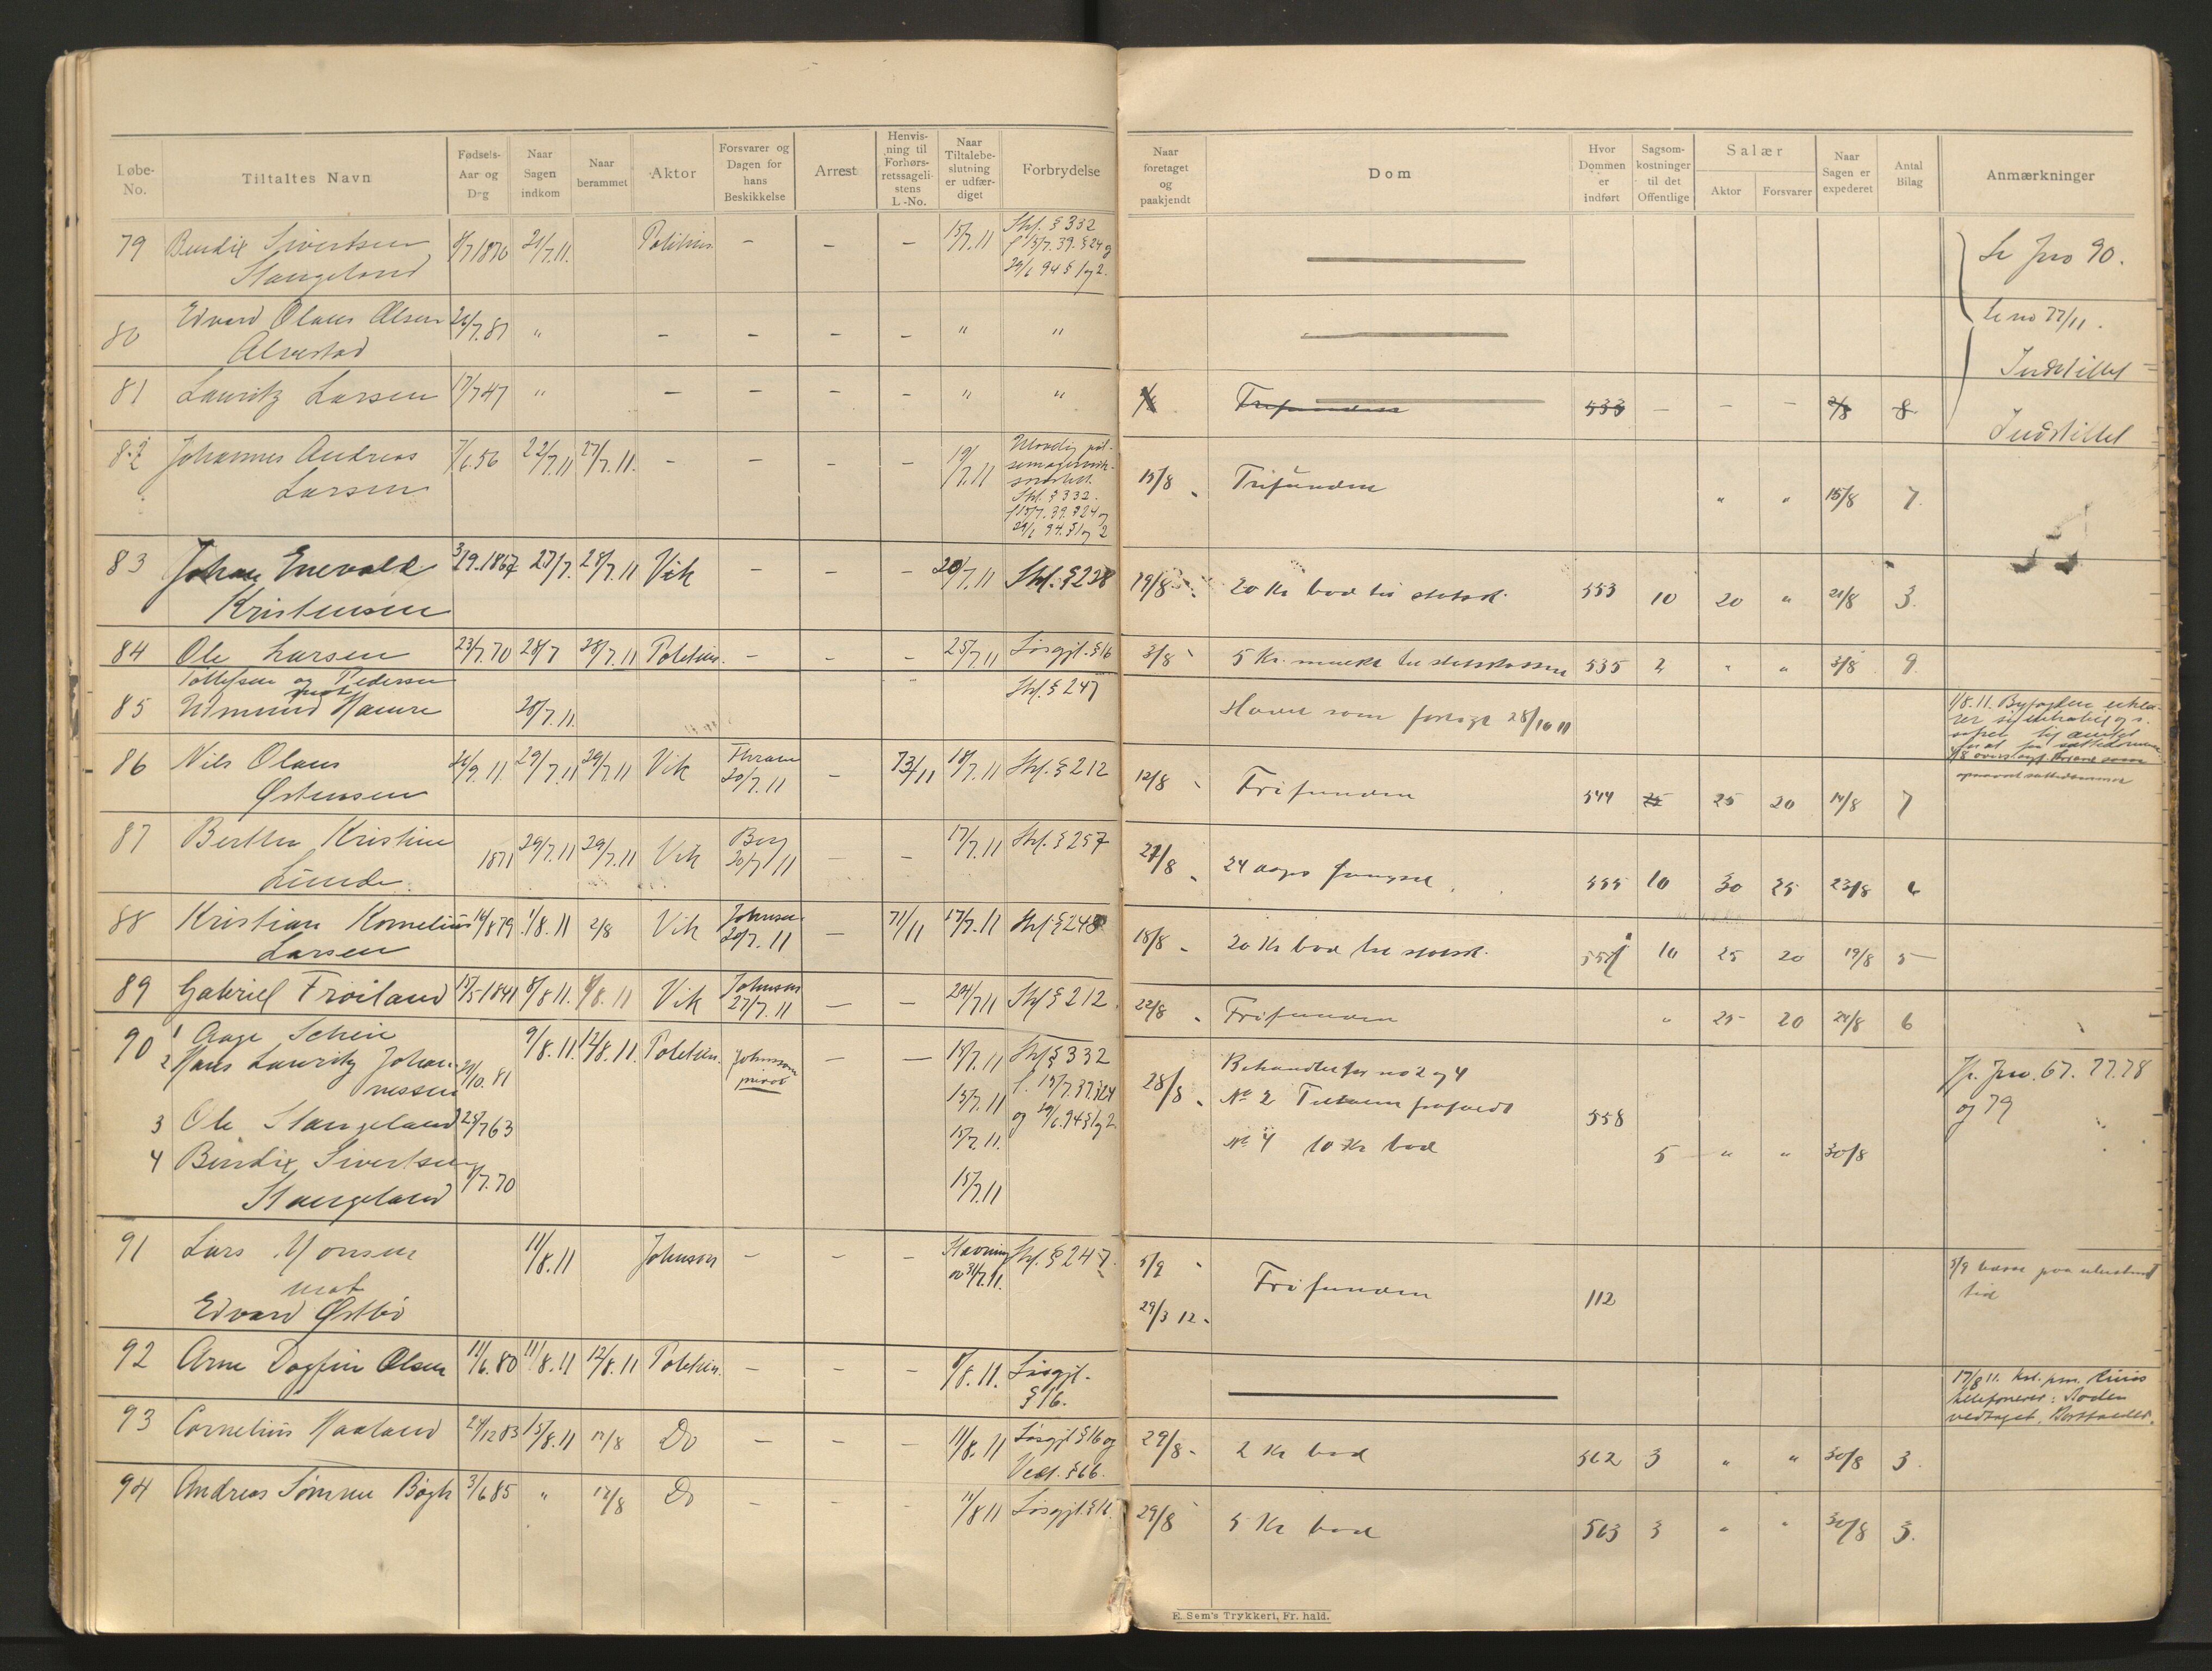 Løbe-No. Tiltaltes Navn Fødsels-Aar og Dag Naar Sagen indkom Naar berammet Aktor Forsvarer og Dagen for hans Beskikkelse Arrest Henvisning til Forhørsretssagelistens L.-No. Naar Tiltalebeslutning er udfærdiget Forbrydelse Naar foretaget og paakjendt Dom Hvor Dommen er indført Sagsomkostninger til det Offentlige Salær Aktor Forsvarer Naar Sagen er expederet Antal Bilag Anmærkninger
79 Bendix Sivertsen 8/7 1870 21/7.11. Politiin. – – – 15/7.11 Strf. § 332 Se Jno 90.
Stangeland l 15/7.39. § 24 og
29/6 94 § 1 og 2.
80 Edvard Olaus Olsen 26/7.81 " – – – – " " Se no 77/11.
Alvestad Indstillet
81 Lauritz Larsen 17/7 47 " – – – – " " Trifunden 533 – – – 2/8 8
Indstillet
82 Johannes Andreas 7/6.56 22/7.11 27/7.11. – – – – 19/7.11 15/8 Trifunden " " 15/8 7.
Larsen Strf. § 332.
l 15/7.39. § 24 og
29/6 94. § 1 og 2
83 Johan Enevald 3/9.1867 27/7. 28/7.11 Vik – – – 20/7.11 Strf. § 228 19/8 20 Kr bod til statsk. 553 10 20 " 21/8 3.
Kristensen
84 Ole Larsen 23/7.70 28/7 28/7.11 Politiin. – – – 25/7.11 Løsgjl. § 16 3/8 5 Kr. mulkt til statskassen 535 2 " " 3/8 9
Tollefsen og Pedersen Strf. § 247
mot
85 28/7.11. Hævet som forligt 28/10 11 1/8.11. Byfogden
86 Nils Olaus 26/9.11. 29/7.11 29/7.11 Vik Thrane 20/7.11 – 73/11 18/7.11 Strf. § 212 12/8 Frifunden 544 25 25 20 14/8 7
Østensen
87 Bertha Kristine 1871 29/7.11 29/7.11 Vik Berg 20/7 11 – – 17/7.11 Strf. § 257 22/8 24 dags fængsel. 555 10 30 25 23/8 6
Lunde.
88 Kristian Kornelius 16/8 79 1/8.11 2/8 Vik Johnsen 20/7.11 – 71/11 17/7.11 Strf. § 248 18/8 20 Kr bod til statsk. 551 10 25 20 19/8 5
Larsen
89 Gabriel Frøiland 17/5-1841 8/8 11. 8/8.11 Vik Johnson 27/7.11 – – 24/7 11 Strf § 212. 22/8 Frifunden " 25 20 24/8 6
90 1 Aage Schein 9/8.11. 12/8.11. Politiin. Johnson privat – – 18/7.11 Strf § 332 28/8 Behandlet for no 2 og 4 Jfr. Jno. 67. 77. 78
2 Hans Lauritz Johannessen 21/10.81 15/7.11 l. 15/7.39. § 24 No 2 558 og 79
3 Ole Stangeland 25/7 63 15/7.11. og 29/6.94 § 1 og 2
4 Bendix Sivertsen 8/7.70 15/7.11 No 4 10 Kr bod 5 " " 30/8
Stangeland
91 Lars Monsen 11/8.11 Johnson – – – Stevning av 31/7.11. Strf. § 247. 5/9 Frifunden 112 5/9 hæves paa ubestemt
mot 29/3 12. tid
Edvard Østbø
92 Arne Dagfin Olsen 11/6.80 11/8.11 12/8.11 Politiin. – – – 8/8.11. Løsgjl. § 16. 17/8 11.
telefoneret: Boden
vedtaget. Bortfalder.
93 Cornelius Haaland 24/12 83 15/8.11 17/8 Do – – – 11/8.11 Løsgjl § 16 og 29/8 2 Kr bod 562 3 " " 30/8 3.
Ved. § 66.
94 Andreas Sømme Bøgh 3/6 85 " 17/8 Do – – – 11/8 11 Løsgjl. § 16. 29/8 5 Kr bod 563 3 " " 30/8 3.
E. Sem's Trykkeri, Fr.hald.